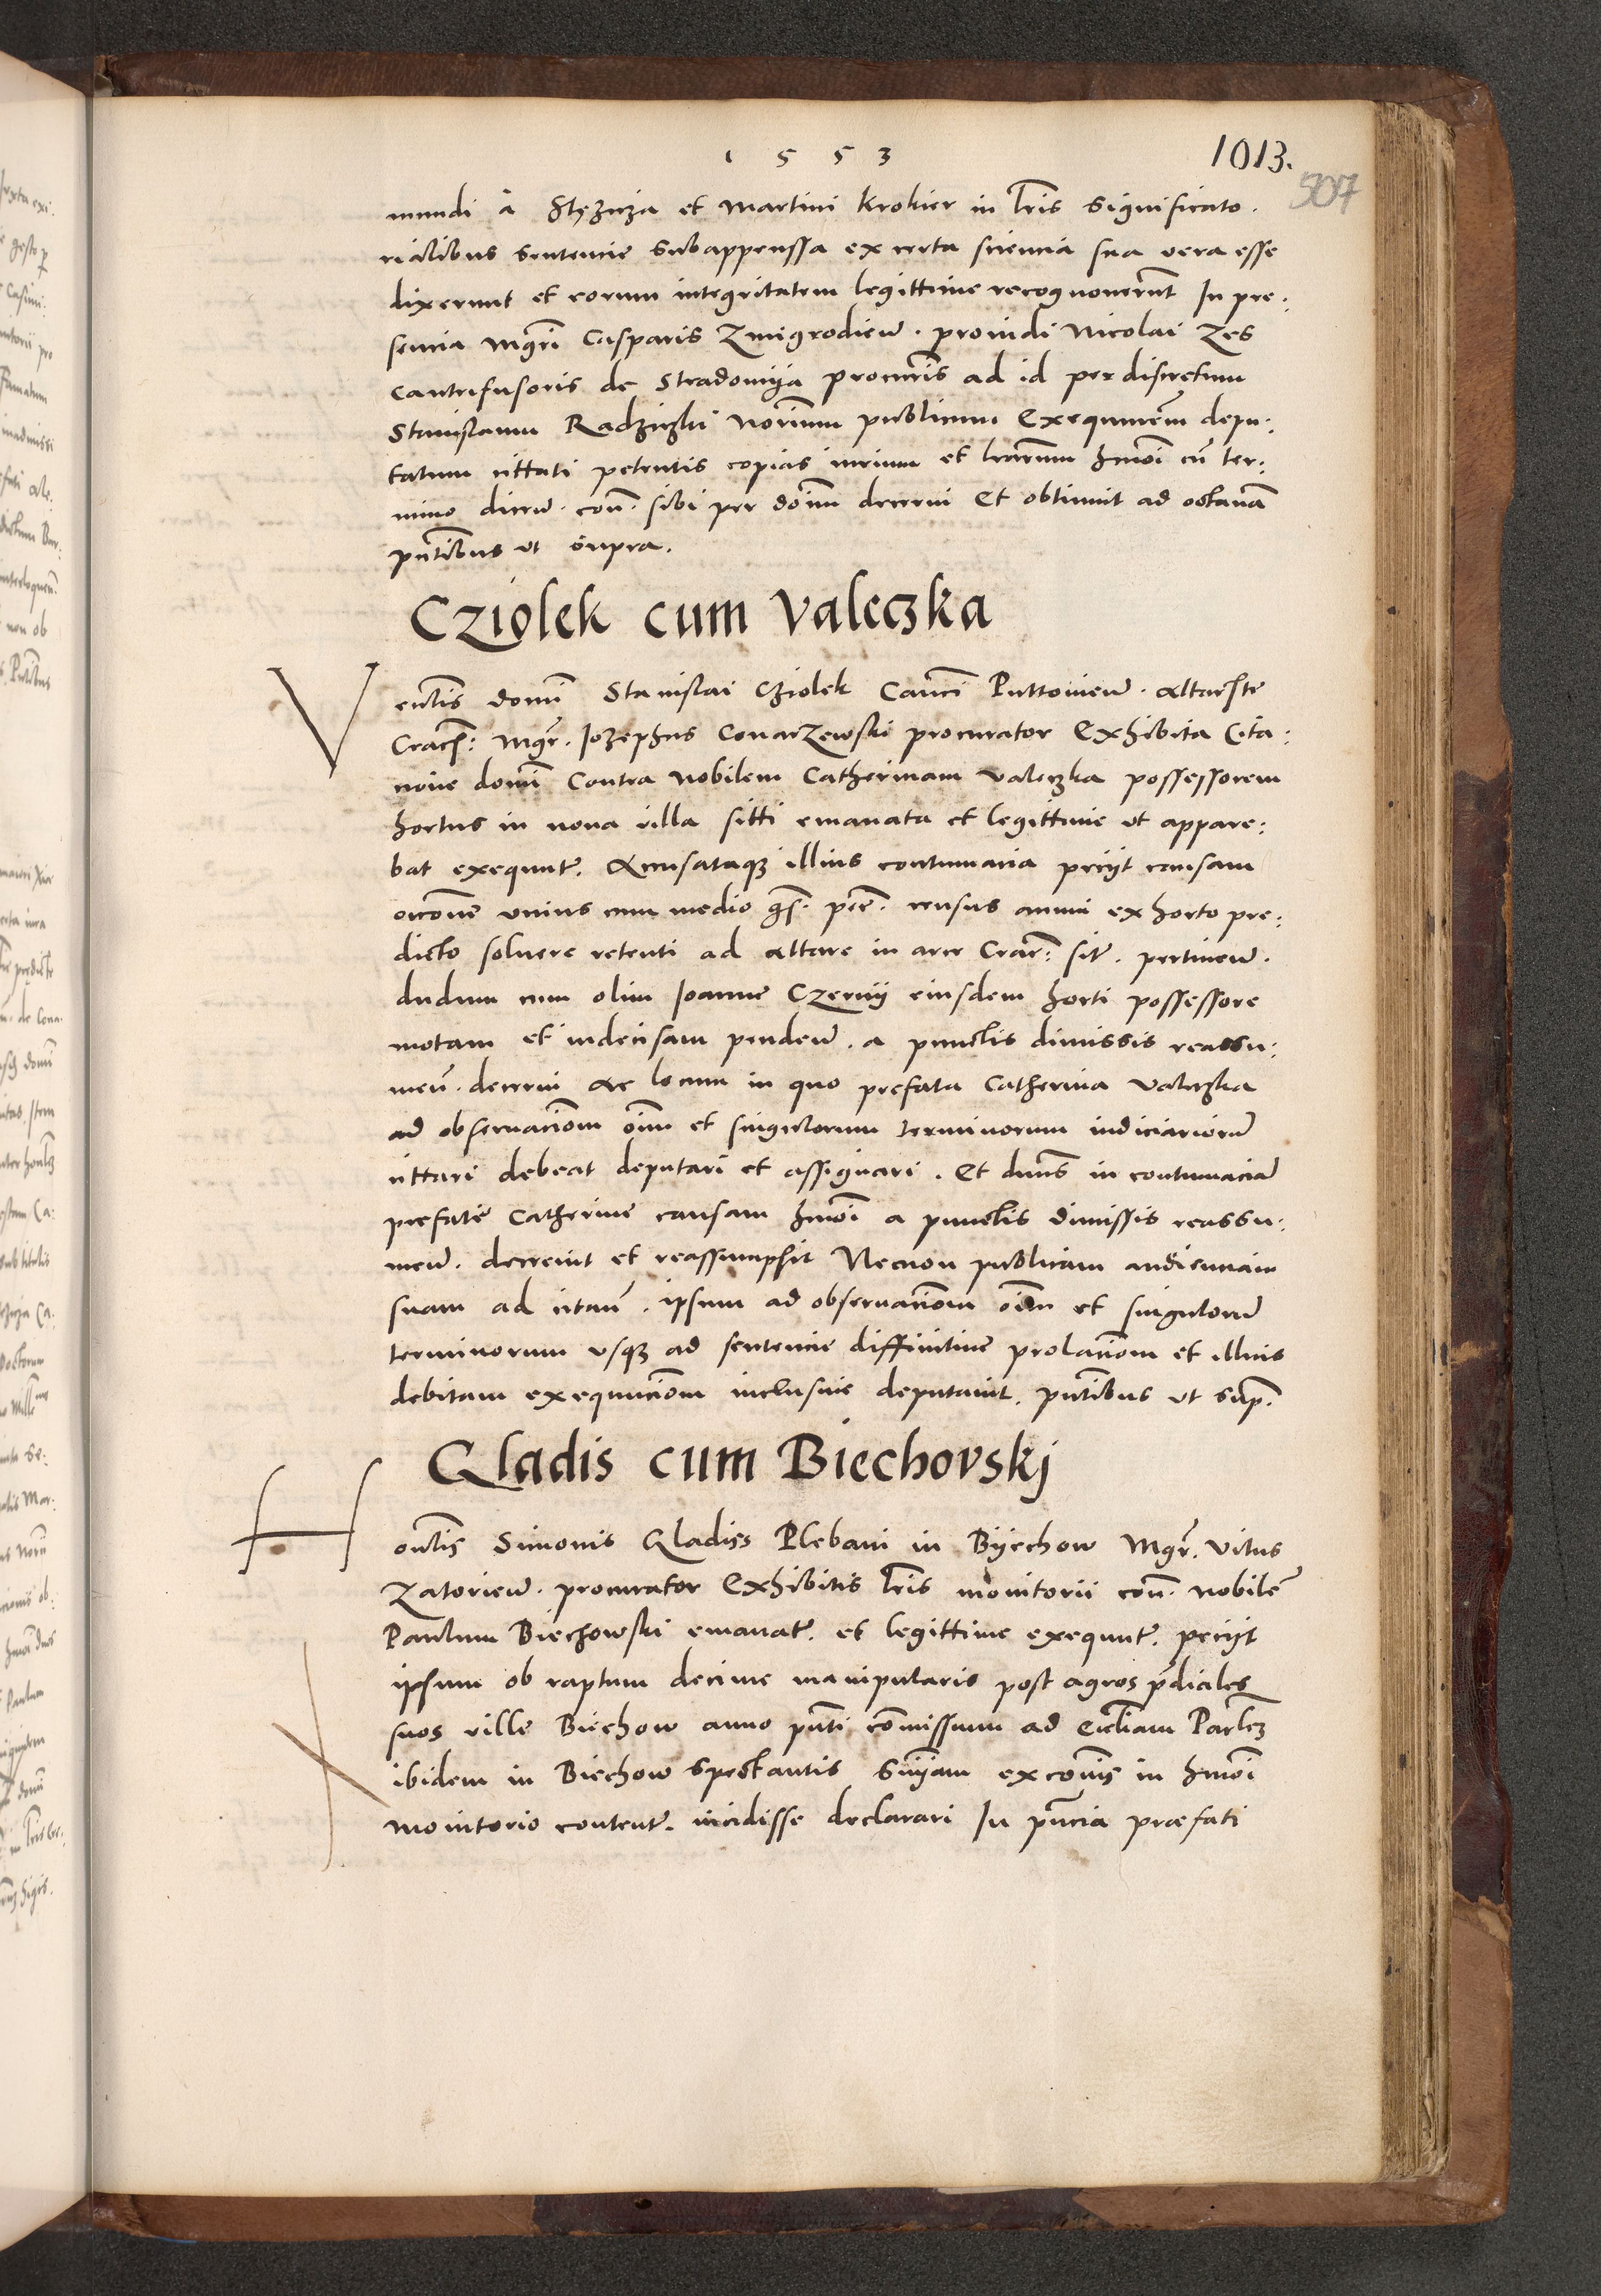 1553
1013.
507
mundi a Stęzicza et Martini Krokier in lr̃is significato.
rialibus sentencie subappenssa ex certa sciencia sua vera esse
dixerunt et eorum integritatem legittime recognoverunt In pre:
sencia Mgr̃i Casparis Zmigrodieñ. providi Nicolai Zes
Cantrifusoris de Stradomija procur̃is ad id per discretum
Stanislaum Radziczki Nor̃ium publicum Exequutorẽm depu:
tatum cittati petentis copias iurium et lr̃arum hm̃oi cũ ter:
mino diceñ. coñ. sibi per don̄m decerni Et obtinuit ad octavā
pñtibus ut supra.
Cziolek cum Valeczka
Ven̄lis domī Stanislai Cziolek Can̄ci Puttovieñ. altarīste
Crac̄h: Mgr̄. Jozephus Conarzewski procurator Exhibita Cita:
cione domī Contra nobilem Catherinam Valeczka possessorem
hortus in nova villa sitti emanata et legittime ut appare:
bat exequut̃. Accusataqꝫ illius contumacia peciit causam
occ̃one unius cum medio gr̃. pec̃. census annui ex horto pre:
dicto solvere retenti ad altare in arce Crac̄: sit̃. pertineñ.
dudum cum olim Joanne Czernij eiusdem horti possessore
motam et indecisam pendeñ. a punctis dimissis reassu:
meñ. decerni ac locum in quo prefata Catherina Valeczka
ad observaciom̄ oīm et singulorum terminorum iudiciariorū
cittari debeat deputari et assignari. Et dn̄us in contumaciā
prefate Catherine causam hm̄oi a punctis dimissis reassu:
meñ. decrevit et reassumpsit Necnon publicam audienciam
suam ad citañ. ipsum ad observaciom̄ oīm et singulorū
terminorum usqꝫ ad sentencie diffinitive prolaciom̄ et illius
debitam exequuciom̄ inclusive deputavit. pñtibus ut sup̃.
Gladis cum Biechovskj
Hon̄lis Simonis Gladiss Plebani in Bijechow Mgr̄. Vitus
Zatorieñ. procurator Exhibitis lr̃is monitorii coñ. nobilē
Paulum Biechowski emanat̃. et legittime exequut̃. peciit
ipsum ob raptum decime manipularis post agros p̃diales
suos ville Biechow anno pñti com̄issum ad Ecc̃liam Parl̃eꝫ
ibidem in Biechow spectantis Sn̄iam excoīs in hm̄oi
monitorio content̃. incidisse declarari In pñcia præfati